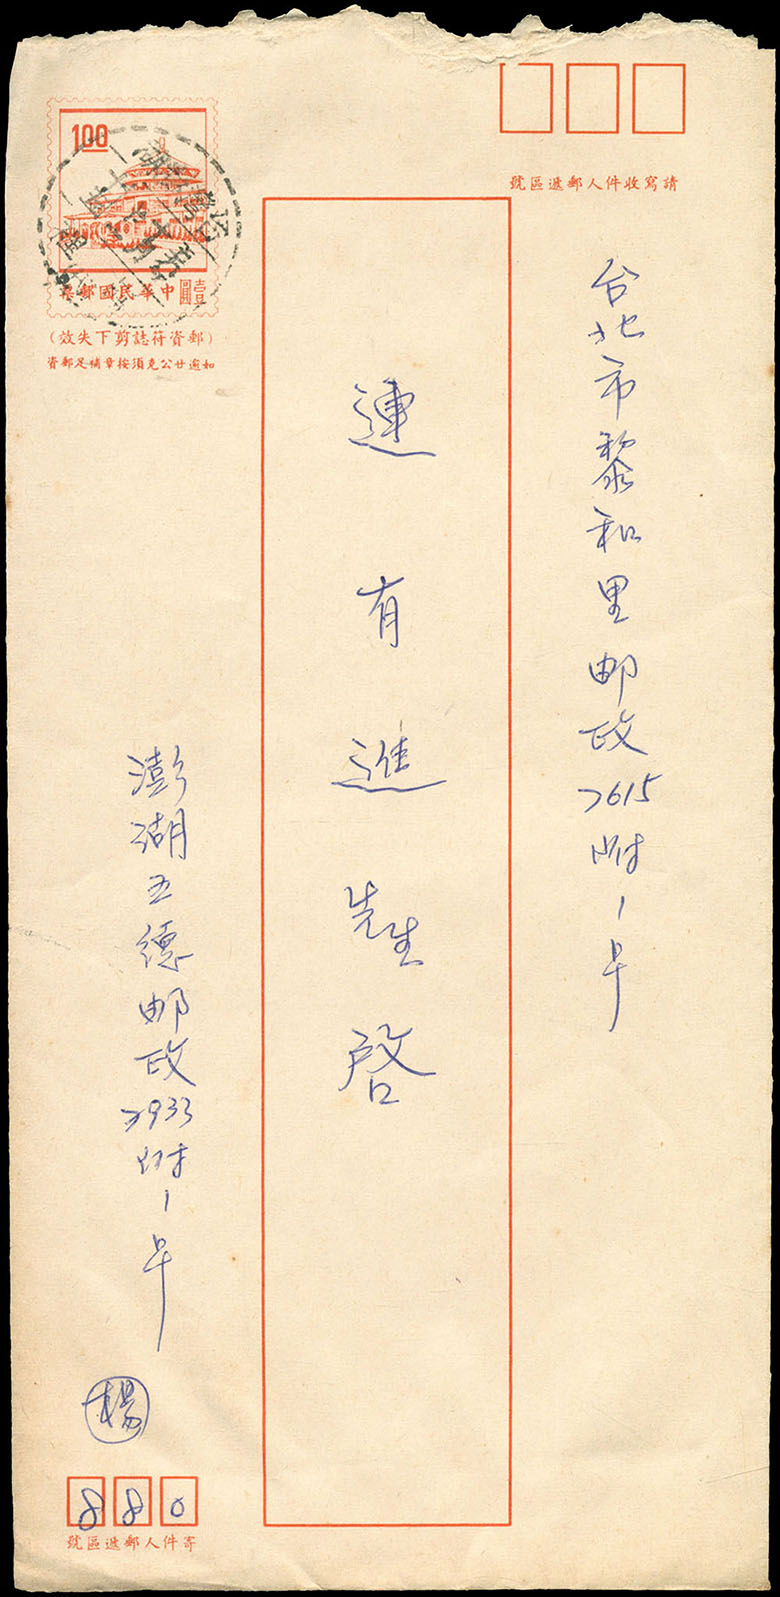 請寫收件人郵遞區號
台北市黎和里邮政7615附1号
連有進先生啓
1.00
中華民國郵票
壹圓
(郵資符誌剪下失效)
如逾廿公克須按章補足郵資
澎湖五德邮政7933附1号
楊
880
寄件人郵遞區號